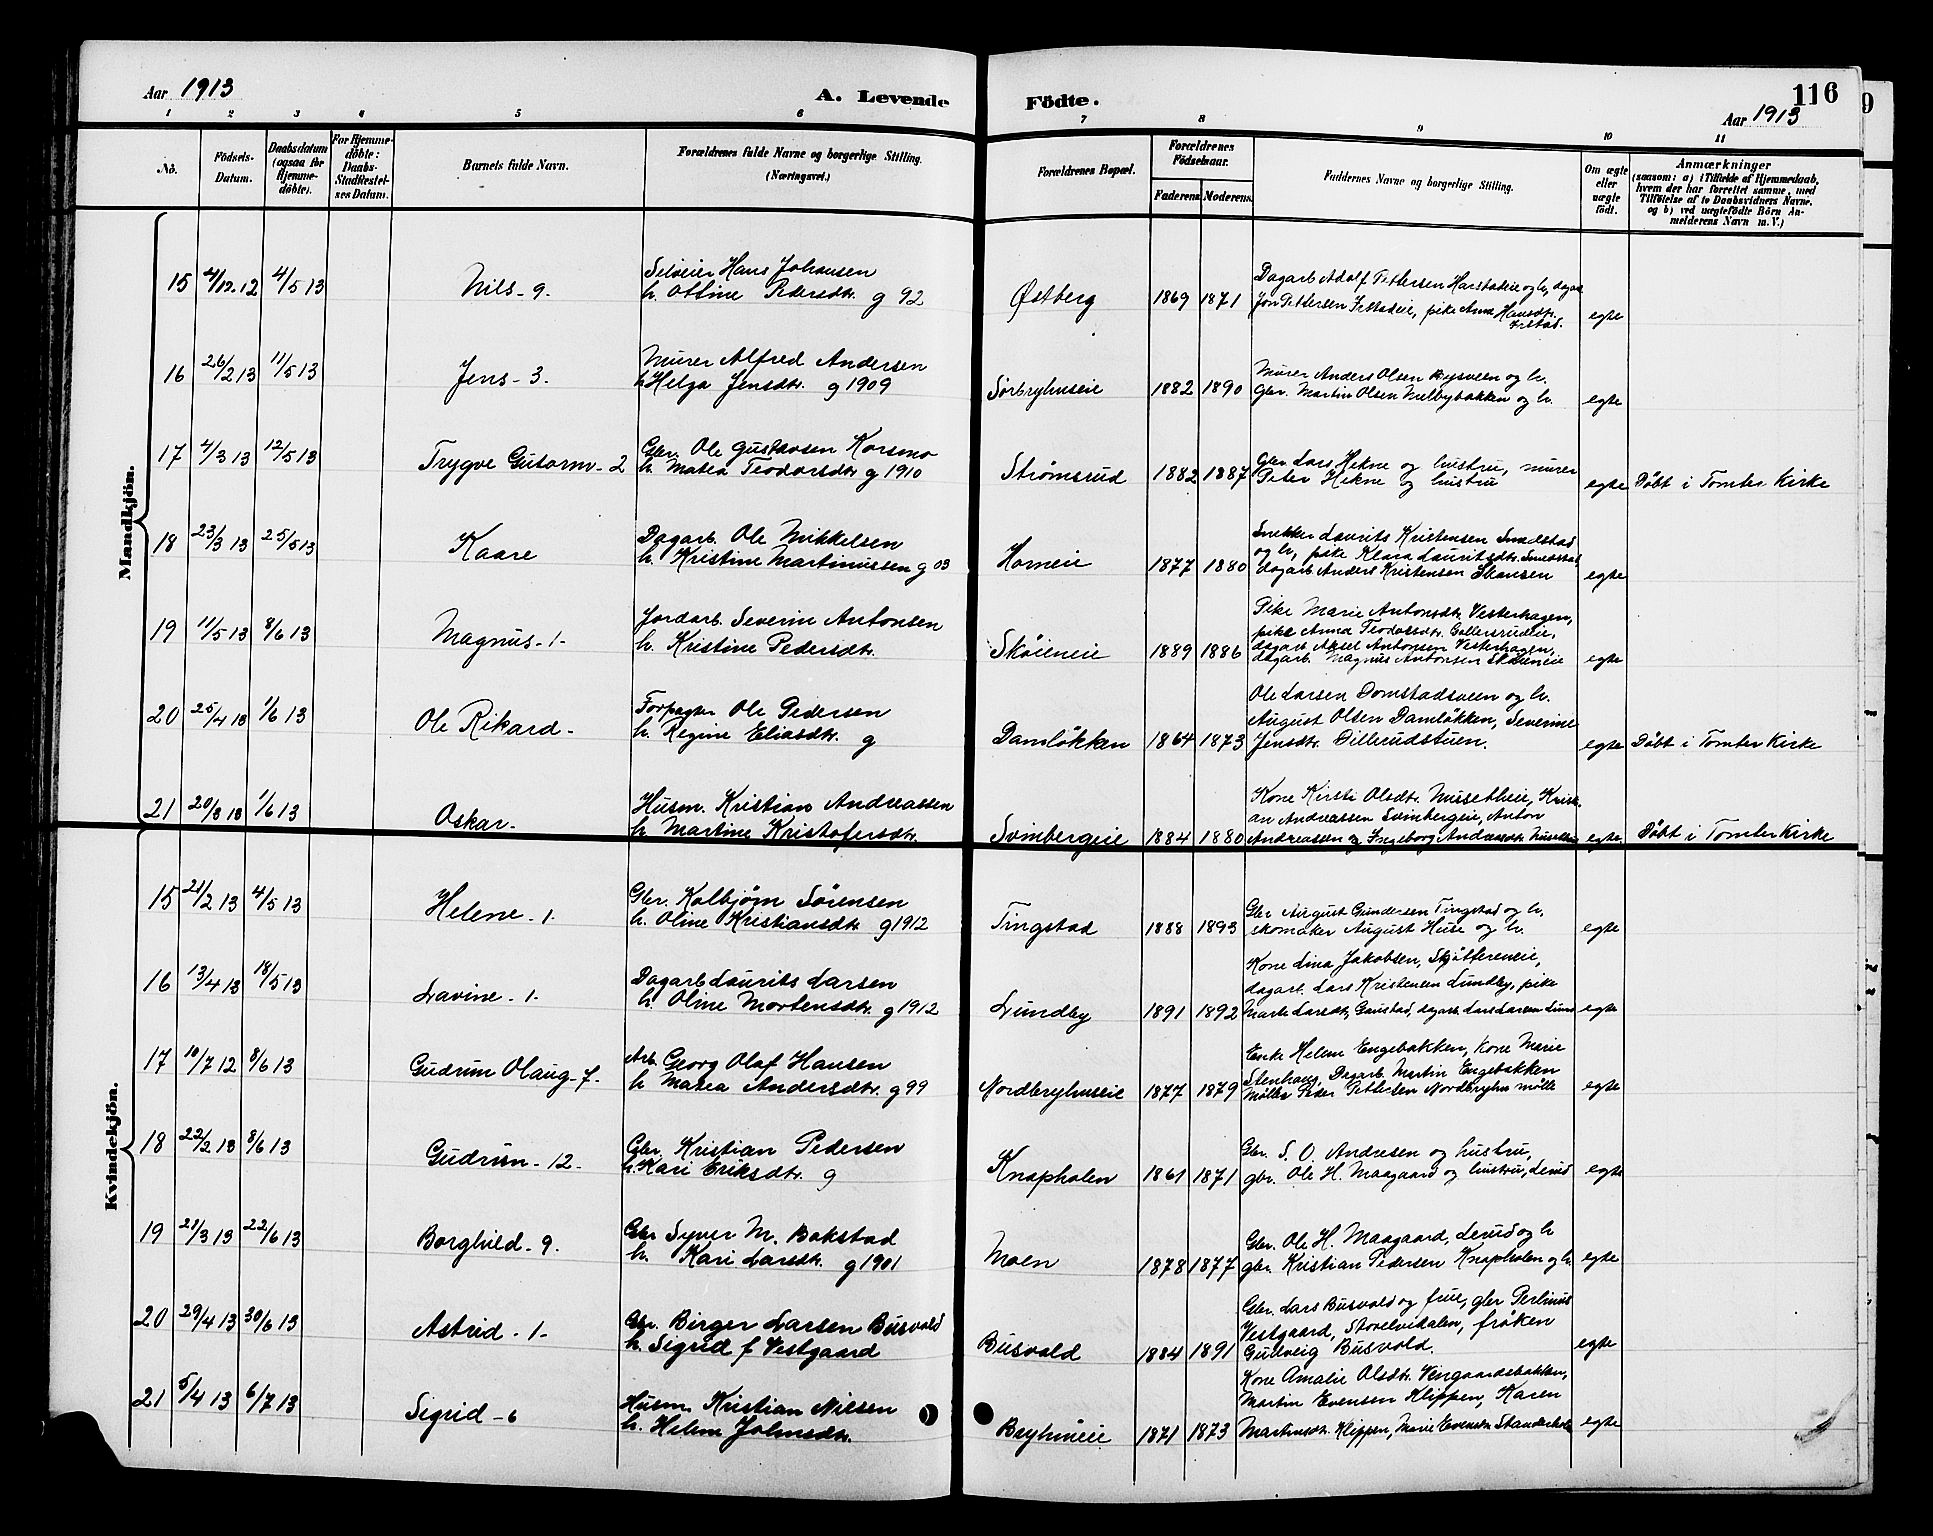 Aar 1913
A. Levende Födte.
116
Aar 1913
1 2 3 4 5 6 7 8 9 10 11
No.
Födsels-Datum.
Daabsdatum (ogsaa for Hjemme-döbte).
For Hjemme-döbte: Daabs-Stadfæstel-ses Datum.
Barnets fulde Navn.
Forældrenes fulde Navne og borgerlige Stilling. (Næringsvei.)
Forældrenes Bopæl.
Forældrenes Födselsaar.
Faderens Moderens
Faddernes Navne og borgerlige Stilling.
Om ægte eller uægte födt.
Anmærkninger
(saasom: a) i Tilfælde af Hjemmedaab,
hvem der har forrettet samme, med
Tilföielse af to Daabsvidners Navne,
og b) ved uægtefödte Börn An-
melderens Navn m. V.)
Mandkjön.
15 4/12.12 4/5 13 Nils - 9. Selveier Hans Johansen
h. Ottine Pedersdtr. g 92 Østberg 1869 1871 Dagarb Adolf Pettersen Harstadeie og h, dagar
Jon Pettersen Frestadeie, pike Anna Hansdtr. egte
16 26/2 13 11/5 13 Jens - 3. Murer Alfred Andersen
h Helga Jensdtr. g 1909 Sørbryhnseie 1882 1890 Murer Anders Olsen Bysveen og h.
Gbr. Martin Olsen Melbybakken og h. egte
17 4/3 13 12/5 13 Trygve Gutorm - 2 Gbr. Ole Gustavsen Korsmo
h. Matea Teodorsdtr g 1910 Strømsrud 1882 1887 Gbr Lars Hekne og hustru, murer
Peter Hekne og hustru egte Døbt i Tomter Kirke
18 23/3 13 25/5 13 Kaare Dagarb. Ole Mikkelsen
h. Kristine Martinussen g 03 Horneie 1877 1880 Snekker Laurits Kristensen Smedstad
og h, pike Klara Lauritsdtr. Smedstad
dagarb. Anders Kristensen Skansen egte
19 11/5 13 8/6 13 Magnus - 1 - Jordarb. Severin Antonsen
h. Kristine Pedersdtr. Skøieneie 1889 1886 Pike Marie Antonsdtr. Vesterhagen,
pike Anna Teodorsdtr. Gallersrudeie,
dagarb Aksel Antonsen Vesterhagen,
dagarb. Magnus Antonsen Skøieneie egte
20 25/4 13 1/6 13 Ole Rikard - Forpagter Ole Pedersen
h. Regine Eliasdtr. g Damløkken 1864 1873 Ole Larsen Domstadsveen og h.
August Olsen Damløkken, Severine
Jensdtr. Dillerudstuen. egte Døbt i Tomter Kirke
21 20/3 13 1/6 13 Oskar - Husm. Kristian Andreassen
h Martine Kristofersdtr. Svinbergeie 1884 1880 Kone Kirsti Olsdtr. Mussetheie, Kristi-
an Andreassen Svinbergeie, Anton
Andreassen og Ingeborg Andreasdtr. egte Døbt i Tomter Kirke
Kvindekjön.
15 21/2 13 4/5 13 Helene - 1. Gbr. Kolbjørn Sørensen
h. Oline Kristiansdtr. g 1912 Tingstad 1888 1893 Gbr August Gundersen Tingstad og h.
skomaker August Huse og h. egte
16 13/4 13 18/5 13 Lavine - 1. Dagarb Laurits Larsen
h. Oline Mortensdtr. g 1912 Lundby 1891 1892 Kone Lina Jakobsen, Skjøttereneie,
dagarb. Lars Kristensen Lundby, pike
Marte Larsdtr, Gaustad, dagarb. Lars Larsen egte
17 10/7 12 8/6 13 Gudrun Olaug - 7. Arb. Georg Olaf Hansen
h Matea Andersdtr. g 99 Nordbryhnseie 1877 1879 Enke Helene Engebakken, Kone Marie
Stenhaug, Dagarb. Martin Engebakken
Møller Peder Pettersen Nordbryhn mølle egte
18 22/2 13 8/6 13 Gudrun - 12. Gbr. Kristian Pedersen
h. Kari Eriksdtr. g Knapholen 1861 1871 Gbr. S. O. Andresen og hustru,
gbr. Ole H. Maagaard og hustru, Lerud egte
19 21/3 13 22/6 13 Borghild - 9. Gbr Syver M. Bokstad
h. Kari Larsdtr. g 1901 Moen 1878 1877 Gbr. Ole H. Maagaard, Lerud og h
gbr. Kristian Pedersen Knapholen og h. egte
20 29/4 13 30/6 13 Astrid - 1. Gbr. Birger Larsen Busvold
h. Sigrid f Vestgaard Busvold 1884 1891 Gbr. Lars Busvold og frue, gbr Perlinus
Vestgaard, Storelvdalen, frøken
Gullveig Busvold. egte
21 5/4 13 6/7 13 Sigrid - 6 Husm. Kristian Nilsen
h. Helene Johnsdtr. Bryhneie 1871 1873 Kone Amalie Olsdtr. Vengaardsbakken,
Martin Evensen Klippen, Karen
Martinsdtr. Klippen, Marie Evensdtr. egte